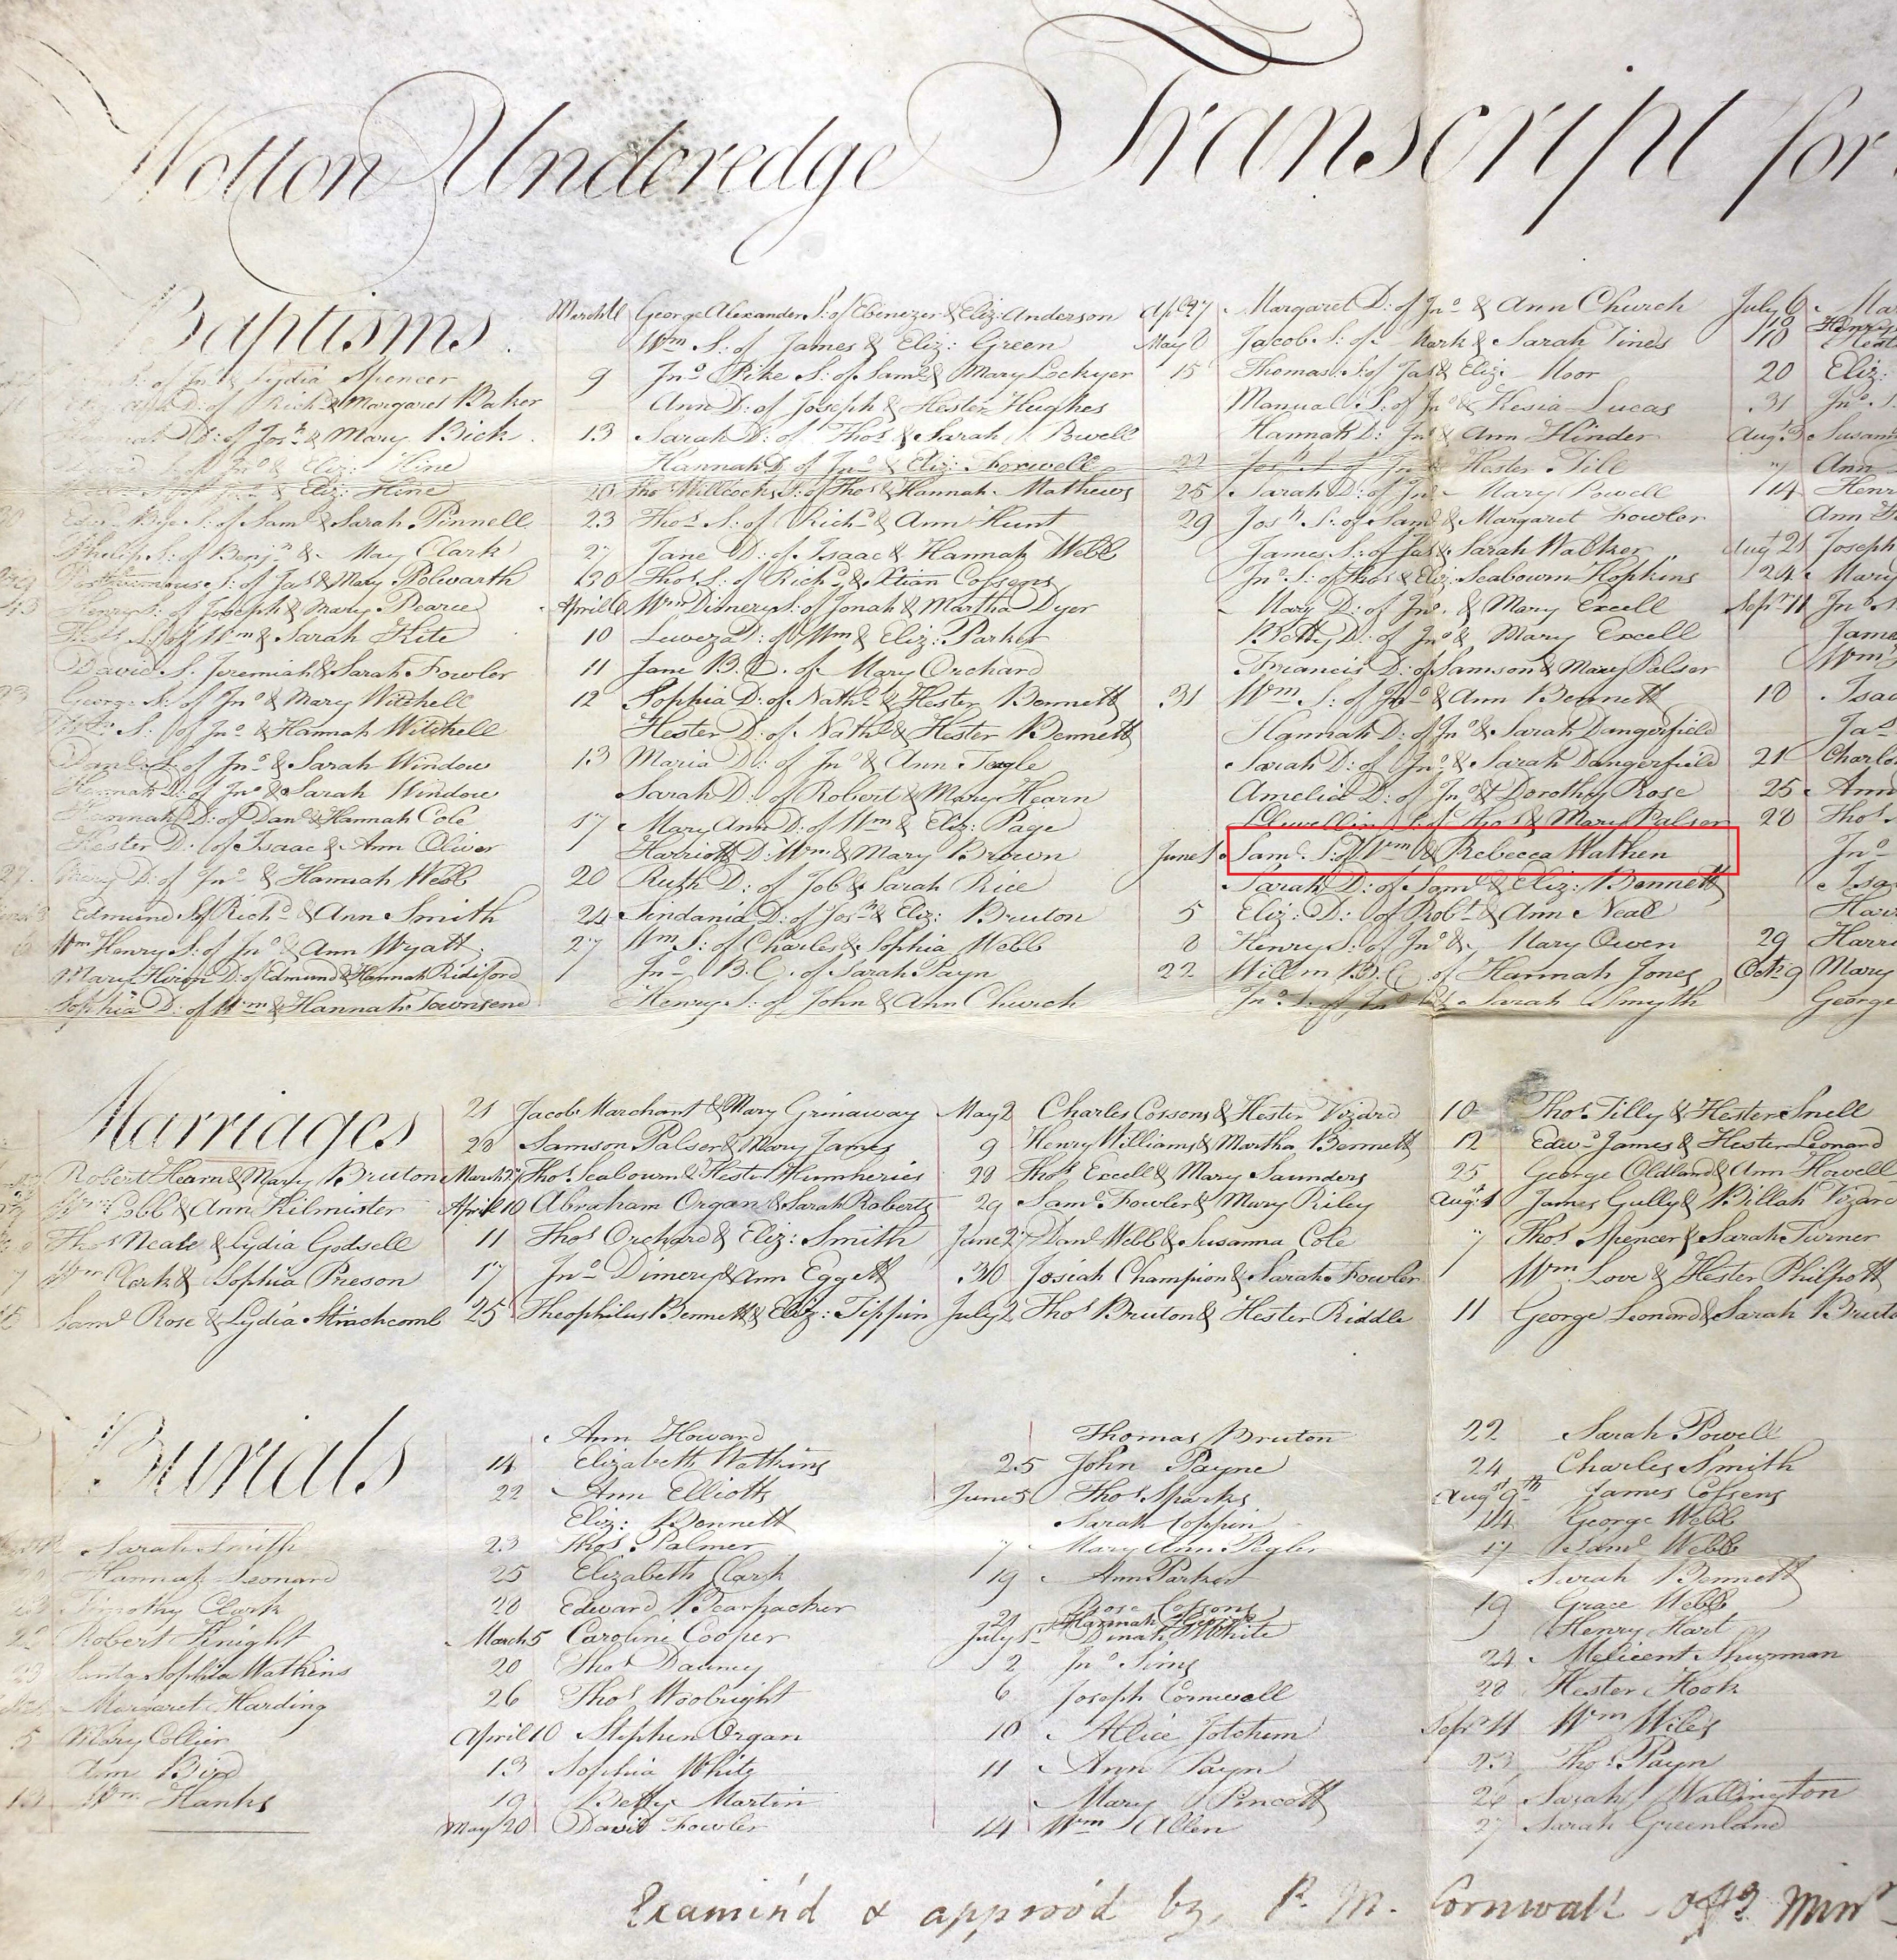 Wotton Underedge Transcript for
Baptisms
S: of Jno & Lydia Spencer
D: of Richd & Margaret Baker
D: of Josh & Mary Bick
S: of Jno & Eliz: Hine
& Eliz: Hine
Edwd Bye S: of Saml & Sarah Pinnell
Philip S: of Benjn & May Clark
Posthumouse S: of Jas & Mary Polwarth
Henry S: of Joseph & Mary Pearce
Thos S: of Wm & Sarah Kite
David S. Jeremiah & Sarah Fowler
23 George S: of Jno & Mary Witchell
Wm S: of Jno & Hannah Witchell
Danl S: of Jno & Sarah Window
Hannah D: of Jno & Sarah Window
Hannah D: of Danl & Hannah Cole
Hester D: of Isaac & Ann Oliver
27 Mary D: of Jno & Hannah Webb
Edmund S: of Richd & Ann Smith
6 Wm Henry S: of Jno & Ann Wyatt
Mary D: of Edmund & Hannah Ridiford
Sophia D: of Wm & Hannah Townsend
George Alexander S: of Ebenezer & Eliz: Anderson
Wm S: of James & Eliz: Green
9 Jno Pike S: of Saml & Mary Lockyer
Ann D: of Joseph & Hester Hughes
13 Sarah D: of Thos & Sarah Powell
Hannah D of Jno & Eliz: Foxwell
20 Thos Willcocks S: of Thos & Hannah Mathews
23 Thos S: of Richd & Ann Hunt
27 Jane D: of Isaac & Hannah Webb
30 Thos S: of Richd & Xtian Cossens
April 6 Wm Dimery S: of Jonah & Martha Dyer
10 Luveza D: of Wm & Eliz: Parker
11 Jane B.C. of Mary Orchard
12 Sophia D: of Nathl & Hester Bennett
Hester D: of Nathl & Hester Bennett
13 Maria D: of Jno & Ann Teagle
Sarah D: of Robert & Mary Hearn
17 Mary Ann D: of Wm & Eliz: Page
Harriott D: Wm & Mary Brown
20 Ruth D: of Job & Sarah Rice
24 Sindania D: of Josh & Eliz: Bruton
27 Wm S: of Charles & Sophia Webb
Jno B.C. of Sarah Payn
Henry S: of John & Ann Church
Apl 27 Margaret D: of Jno & Ann Church
May 8 Jacob S: of Mark & Sarah Tines
15 Thomas S: of Jas & Eliz: Moor
Manual S: of Jno & Kesia Lucas
Hannah D: Jno & Ann Hinder
22 Josh S: of Jno & Hester Till
25 Sarah D: of Jno Mary Powell
29 Josh S: of Saml & Margaret Fowler
James S: of Jas & Sarah Walker
Jno S: of Thos & Eliz: Seabourn Hopkins
Mary D: of Jno & Mary Excell
Betty D: of Jno & Mary Excell
Francis D: of Samson & Mary Palser
31 Wm S: of Jno & Ann Bennett
Hannah D: of Jno & Sarah Dangerfield
Sarah D: of Jno & Sarah Dangerfield
Amelia D: of Jno & Dorothy Rose
Llewellin S: of Thos & Mary Palser
June 1 Saml S: of Wm & Rebecca Wathen
Sarah D: of Saml & Eliz: Bennett
5 Eliz: D: of Robt & Ann Neal
8 Henry S: of Jno & Mary Owen
22 Willm B.C. of Hannah Jones
Jno S: of Jno & Sarah Smyth
July 6
10 Henry
20 Eliz:
31 Jno S
Augst 3 Susann
7 Ann
14 Henr
Ann
Augt 21 Joseph
24 Mary
Sepr 11 Jno S
Jame
Wm
18 Isaa
Jas
21 Charlo
25 Ann
28 Thos
Jno
Isa
Harr
29 Harri
Octr 9 Mary
George
Marriages
Robert Hearn & Mary Bruton
Wm Cobb & Ann Kilmister
Thos Neale & Lydia Godsell
Wm Clark & Sophia Preson
Saml Rose & Lydia Stinchcomb
21 Jacob Marchant & Mary Grinaway
28 Samson Palser & Mary James
March 27 Thos Seabourn & Hester Humheries
April 10 Abraham Organ & Sarah Roberts
11 Thos Orchard & Eliz: Smith
17 Jno Dimery & Ann Eggett
25 Theophilus Bennett & Eliz: Tippin
May 2 Charles Cossons & Hester Vizard
9 Henry Williams & Martha Bennett
28 Thos Excell & Mary Saunders
29 Saml Fowler & Mary Riley
June 27 Danl Webb & Susanna Cole
30 Josiah Champion & Sarah Fowler
July 2 Thos Bruton & Hester Riddle
10 Thos Tilly & Hester Snell
12 Edwd James & Hester Leonard
25 George Oldland & Ann Howell
Augt 1 James Gully & Billah Vizard
7 Thos Spencer & Sarah Turner
Wm Love & Hester Philpott
11 George Leonard & Sarah Bruto
Burials
Sarah Smith
Hannah Leonard
Timothy Clark
Robert Knight
23 Sophia Watkins
Margaret Harding
5 Mary Collier
Ann Bird
Wm Hanks
Ann Howard
14 Elizabeth Watkins
22 Ann Elliotts
Eliz: Bennett
23 Thos Palmer
25 Elizabeth Clark
28 Edward Bearpacker
March 5 Caroline Cooper
20 Thos Dauncy
26 Thos Woolright
April 10 Stephen Organ
13 Sophia White
19 Betty Martin
May 20 David Fowler
Thomas Bruton
25 John Payne
June 5 Thos Sparks
Sarah Coppin
7 Mary Ann Pegler
19 Ann Parker
Rose Cossons
21 Hannah George
July 1st Dinah White
2 Jno Sims
6 Joseph Cornwell
10 Alice Jotchem
11 Ann Payn
Mary Pincott
14 Wm Allen
22 Sarah Powell
24 Charles Smith
Augst 9th James Cossens
14 George Webb
17 Saml Webb
Sarah Bennett
19 Grace Webb
Henry Hart
24 Melicent Shurman
28 Hester Hook
Sepr 11 Wm Wiles
23 Thos Payn
26 Sarah Wallington
27 Sarah Greenland
Examin'd & approv'd by, P. M. Cornwall Offg Minr